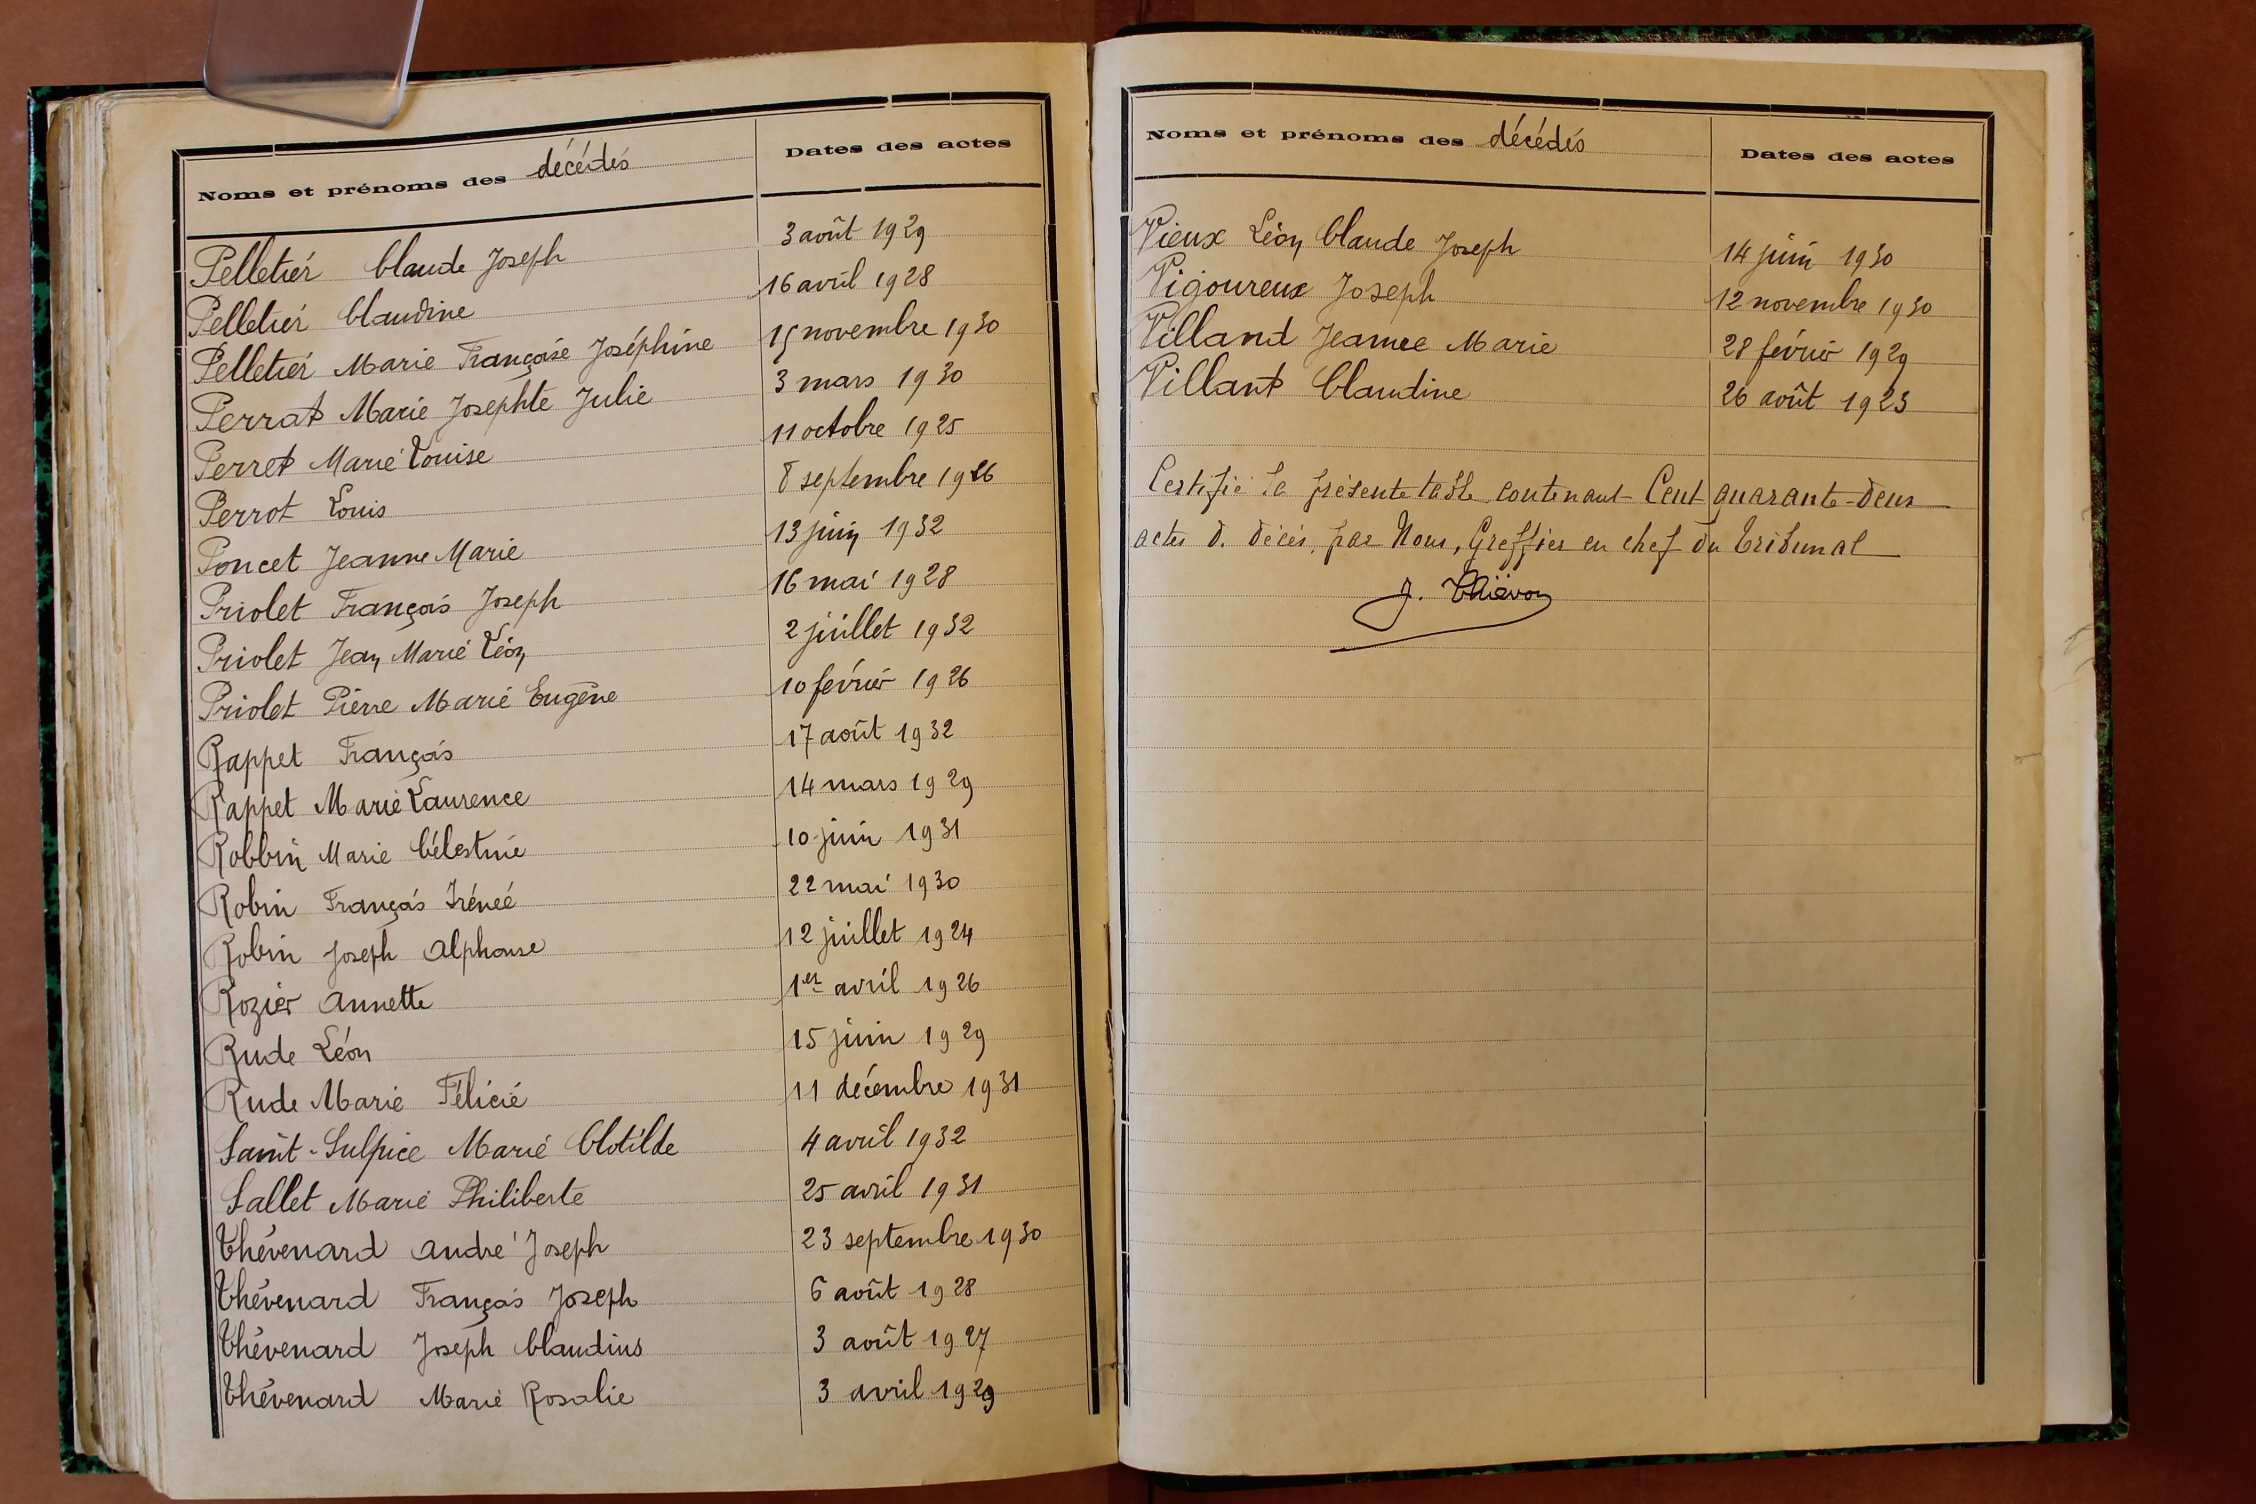 Noms et prénoms des décédés Dates des actes
Pelletier Claude Joseph 3 août 1929
Pelletier Claudine 16 avril 1928
Pelletier Marie Françoise Joséphine 15 novembre 1930
Perrat Marie Josephte Julie 3 mars 1930
Perret Marie Louise 11 octobre 1925
Perrot Louis 8 septembre 1926
Poncet Jeanne Marie 13 juin 1932
Priolet François Joseph 16 mai 1928
Priolet Jean Marie Léon 2 juillet 1932
Priolet Pierre Marie Eugène 10 février 1926
Rappet François 17 août 1932
Rappet Marie Laurence 14 mars 1929
Robbin Marie Célestine 10 juin 1931
Robin François Irénée 22 mai 1930
Robin Joseph Alphonse 12 juillet 1924
Rozier Annette 1er avril 1926
Rude Léon 15 juin 1929
Rude Marie Félicie 11 décembre 1931
Saint-Sulpice Marie Clotilde 4 avril 1932
Sallet Marie Philiberte 25 avril 1931
Thévenard André Joseph 23 septembre 1930
Thévenard François Joseph 6 août 1928
Thévenard Joseph Claudius 3 août 1927
Thévenard Marie Rosalie 3 avril 1929
Noms et prénoms des décédés Dates des actes
Vieux Léon Claude Joseph 14 juin 1930
Vigoureux Joseph 12 novembre 1930
Villand Jeanne Marie 28 février 1929
Villant Claudine 26 août 1923
Certifié la présente table contenant Cent quarante-deux
actes de décès, par Nous, Greffier en chef du Tribunal
J. Thiévon